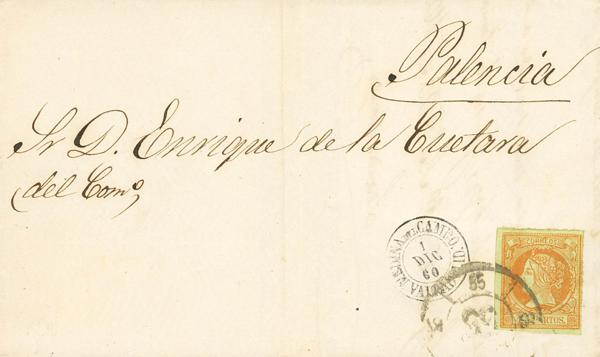 Palencia
Sr D. Enrique de la Cuetara
del Comº
MEDINA DEL CAMPO.
1
DIC
60
VALLAD
55
CORREOS
CUARTOS.